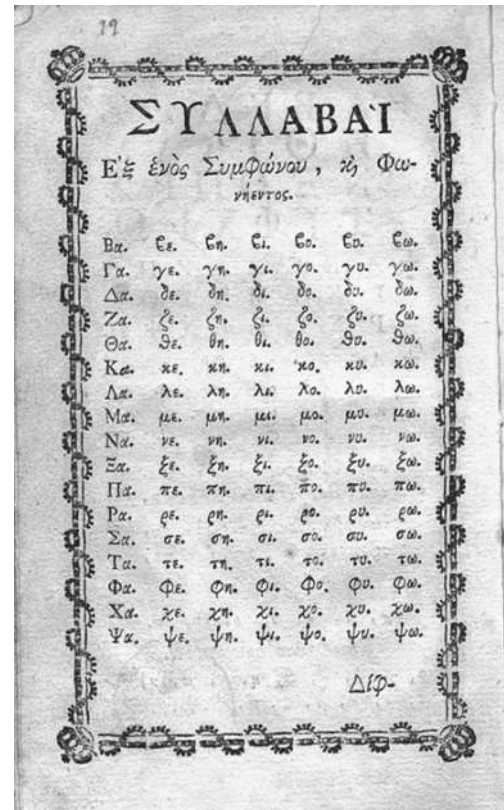 19
ΣΥΛΛΑΒΑὶ
Ἐξ ἑνὸς Συμφώνου, ϗ Φω-
νήεντος.
Βα. ϐε. ϐη. ϐι. ϐο. ϐυ. ϐω.
Γα. γε. γη. γι. γο. γυ. γω.
Δα. δε. δη. δι. δο. δυ. δω.
Ζα. ζε. ζη. ζι. ζο. ζυ. ζω.
Θα. ϑε. θη. θι. θο. ϑυ. ϑω.
Κα. κε. κη. κι. κο. κυ. κω.
Λα. λε. λη. λι. λο. λυ. λω.
Μα. με. μη. μι. μο. μυ. μω.
Να. νε. νη. νι. νο. νυ. νω.
Ξα. ξε. ξη. ξι. ξο. ξυ. ξω.
Πα. πε. πη. πι. πο. πυ. πω.
Ρα. ρε. ρη. ρι. ρο. ρυ. ρω.
Σα. σε. ση. σι. σο. συ. σω.
Τα. τε. τη. τι. το. τυ. τω.
Φα. φε. φη. φι. φο. φυ. φω.
Χα. χε. χη. χι. χο. χυ. χω.
Ψα. ψε. ψη. ψι. ψο. ψυ. ψω.
Δίφ-